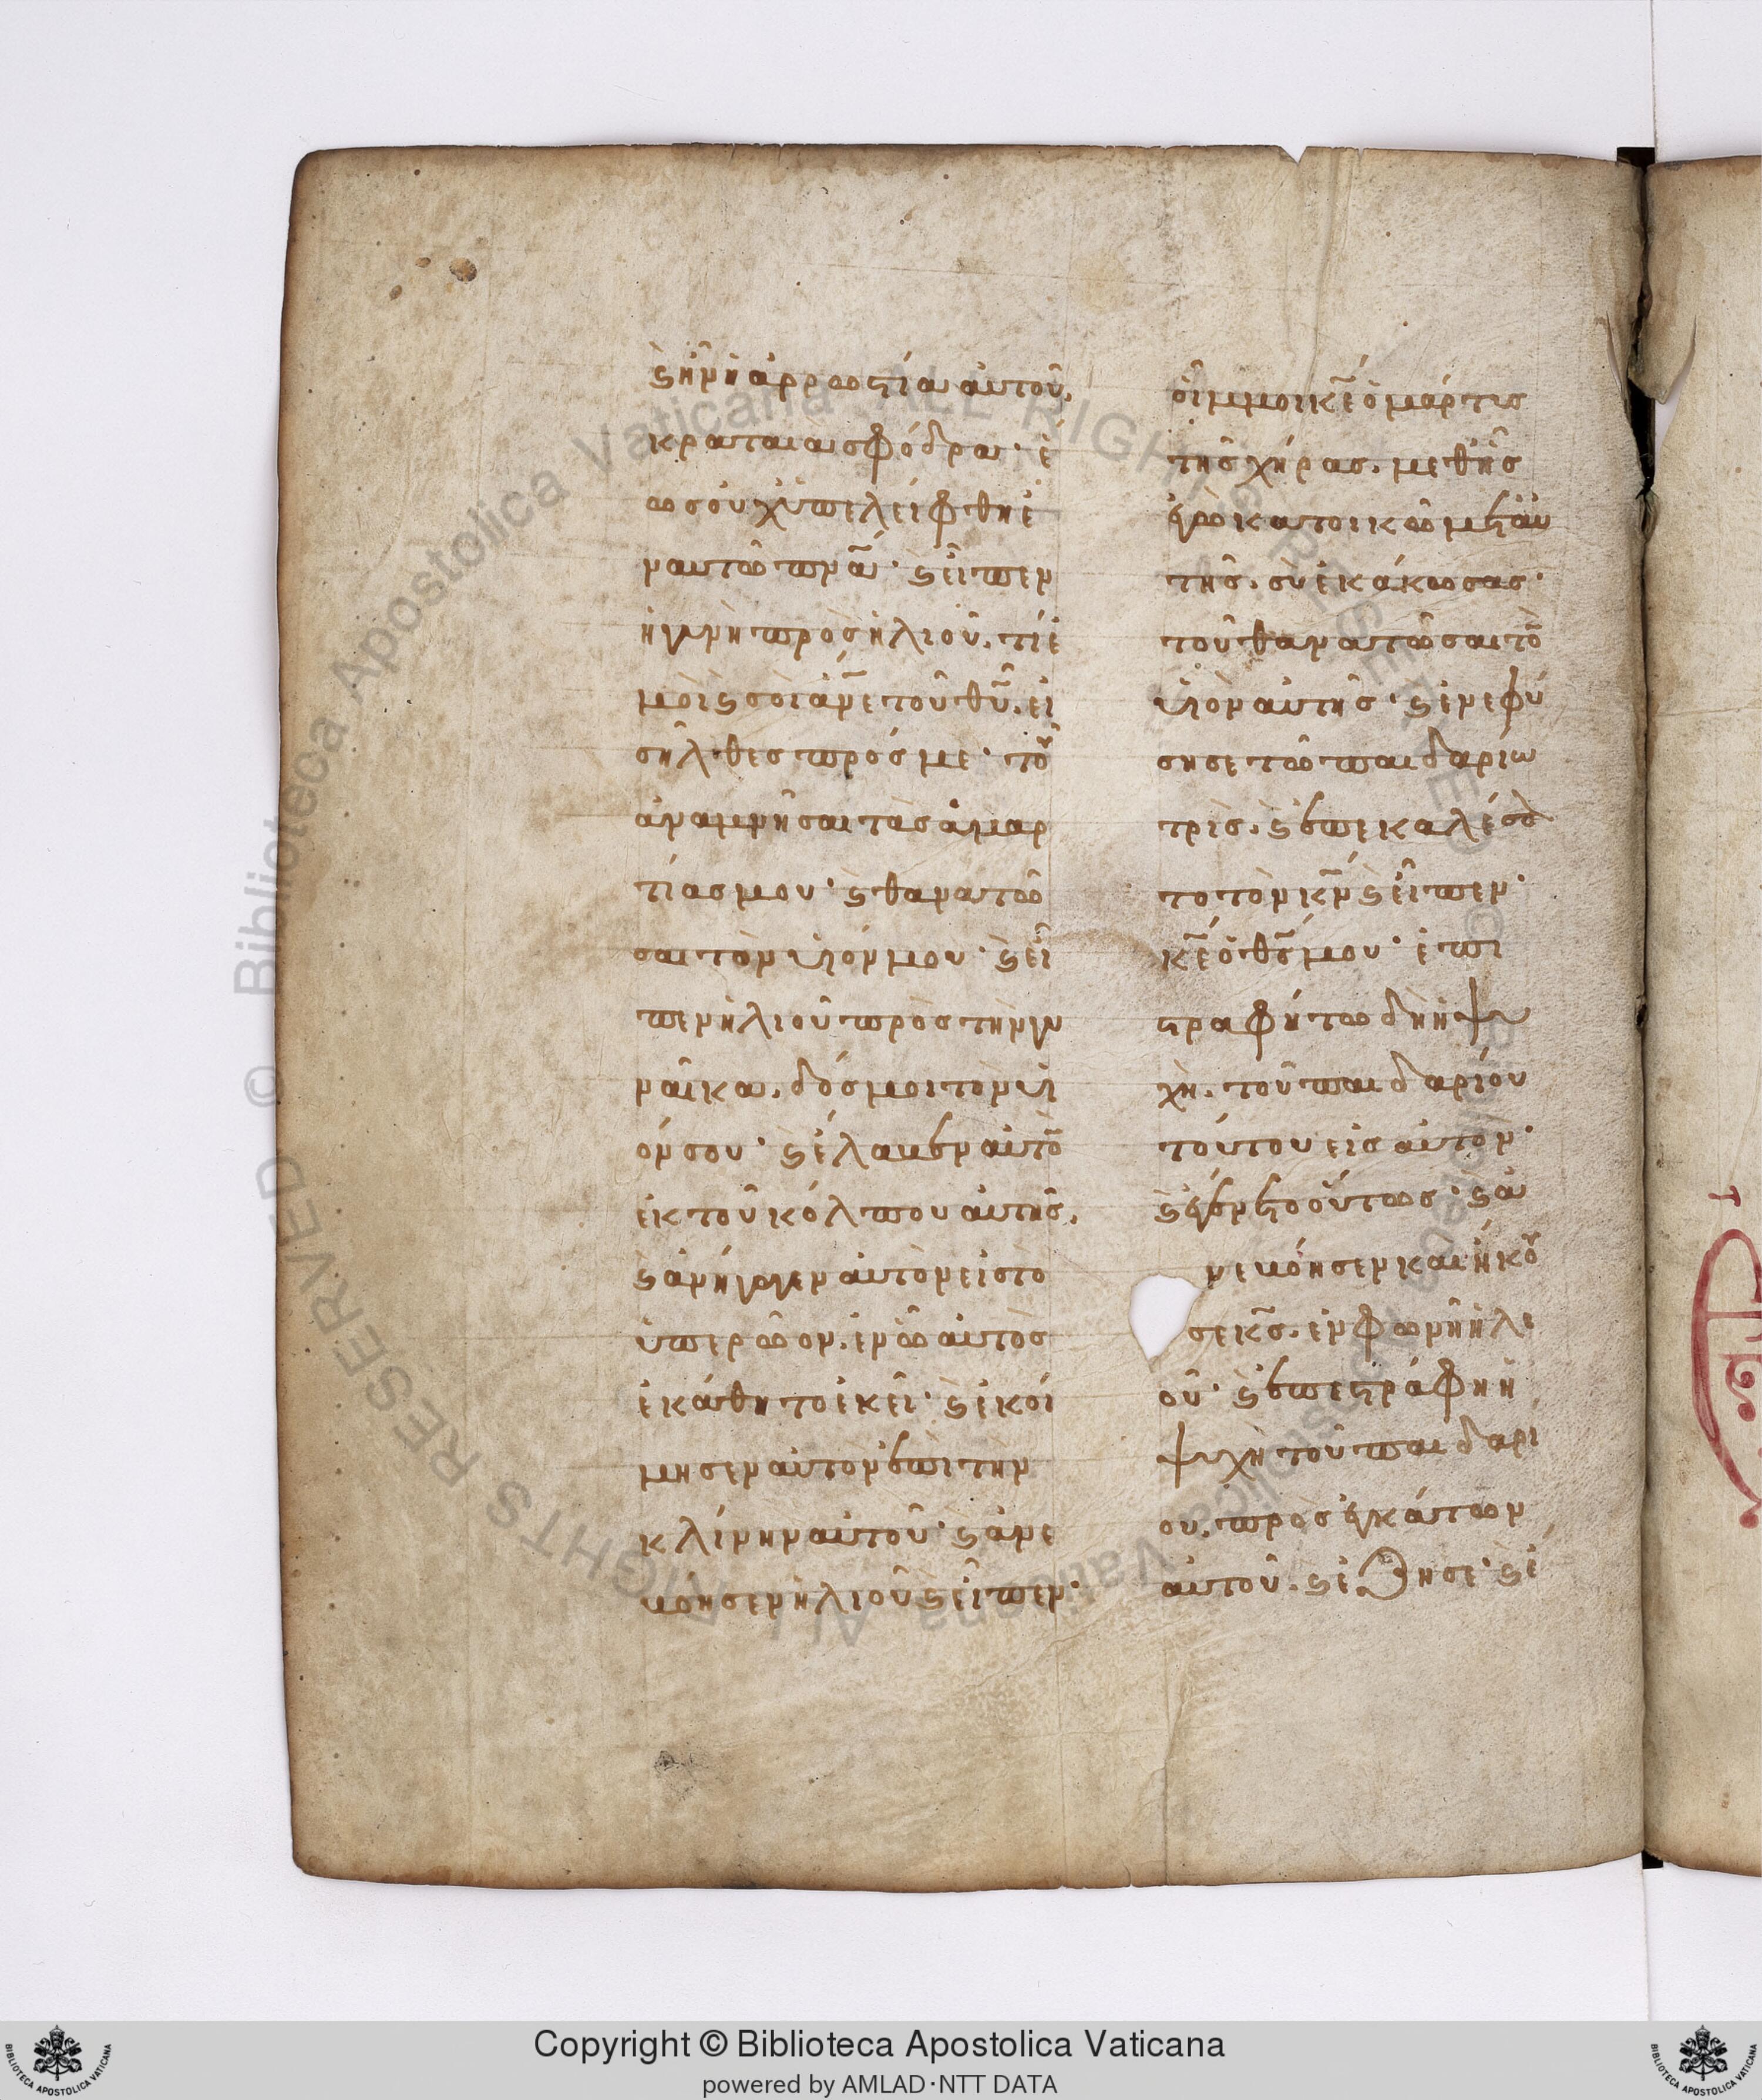 ϗ ἦν ἡ ἀρρωστία αὐτοῦ,
κραταιὰ σφόδρα· ἕ
ως οὐχ ὑπελείφθη ἐ
ν αὐτῶ πν̅α· ϗ εἶπεν
ἡ γυνὴ προς ἠλιοῦ. τί ἐ
μοὶ ϗ σοὶ ἄν̅ε τοῦ θυ̅. εἰ
σῆλθες πρός με· τοῦ
ἀναμνῆσαι τὰς ἁμαρ
τίας μου· ϗ θανατῶ
σαι τὸν υἱόν μου· ϗ εἶ
πεν ἠλιοῦ πρὸς τὴν γυ
ναῖκα, δός μοι τὸν υἱ
όν σου· ϗ ἔλαβεν αὐτὸ
ἐκ τοῦ κόλπου αὐτῆς,
ϗ ἀνήγαγεν αὐτὸν εἰς τὸ
ὑπερῶον. ἐν ὧ αὐτὸς
ἐκάθητο ἐκεῖ· ϗ ἐκοί
μησεν αὐτὸν ἐπὶ τὴν
κλίνην αὐτοῦ· ϗ ἀνε
βόησεν ἠλιοῦ ϗ εἶπεν·
οἴμμοι κ̅ε ὁ μάρτυς
τῆς χήρας. μεθ' ἧς
ἐγὼ κατοικῶ μετ' αυ
τῆς. σὺ ἐκάκωσας·
τοῦ θανατῶσαι τὸ
υἱὸν αὐτῆς· ϗ ἐνεφύ
σησε τῶ παιδαρίω
τρὶς. ϗ ἐπεκαλέσα
το τὸν κ̅ν ϗ εἶπεν·
κ̅ε ὁ θ̅ς μου· ἐπι
στραφήτω δὴ ἡ ψυ
χὴ. τοῦ παιδαρίου
τούτου εἰς αὐτόν·
ϗ ἐγένετο οὕτως· ϗ ἀ
νεβόησεν καὶ ἤκου
σε κ̅ς. ἐν φωνῆ ἠλι
οῦ· ϗ ἐπεστράφη ἡ
ψυχὴ τοῦ παιδαρί
ου, πρὸς ἔγκατον
αὐτοῦ. ϗ ἔζησε· ϗ ἐ
Copyright © Biblioteca Apostolica Vaticana
powered by AMLAD·NTT DATA